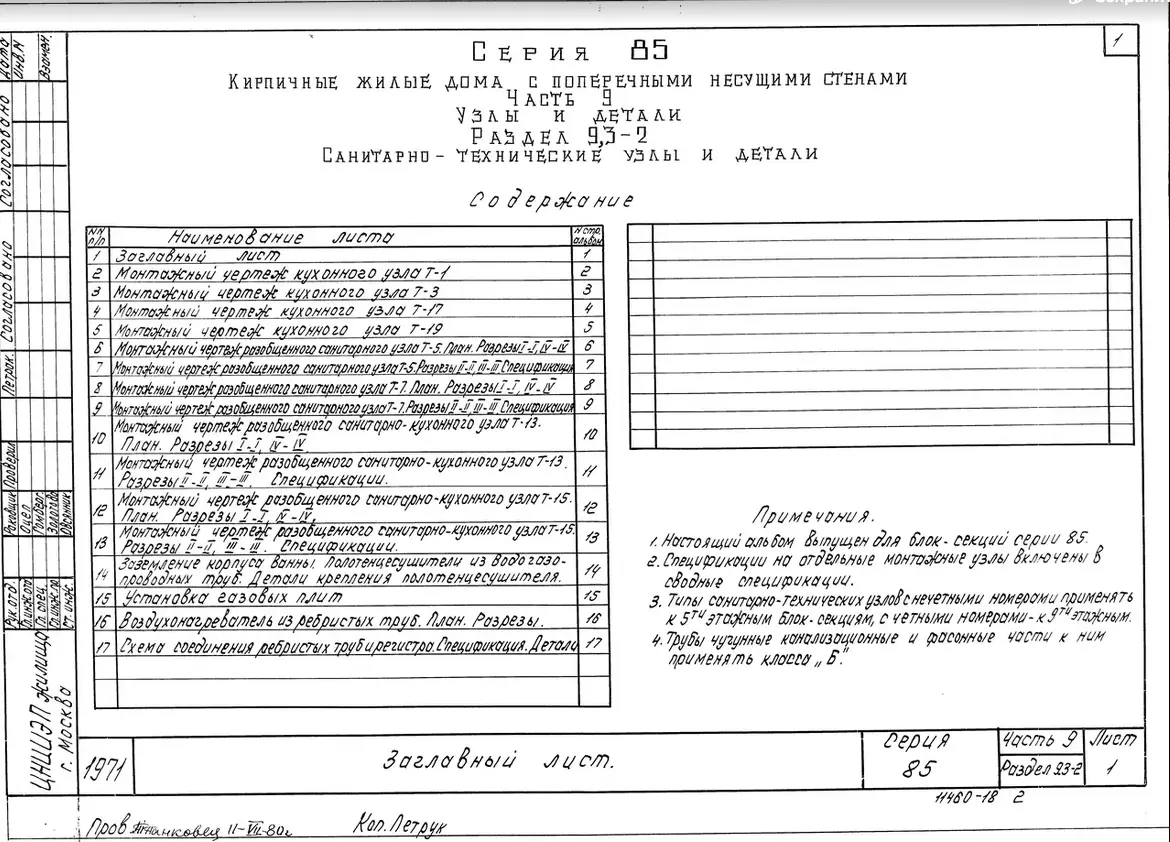 1
Серия 85
Кирпичные жилые дома с поперечными несущими стенами
Часть 9
Узлы и детали
Раздел 9,3-2
Санитарно-технические узлы и детали
Содержание
NN п/п Наименование листа N стр. альбом
1 Заглавный лист 1
2 Монтажный чертеж кухонного узла Т-1 2
3 Монтажный чертеж кухонного узла Т-3 3
4 Монтажный чертеж кухонного узла Т-17 4
5 Монтажный чертеж кухонного узла Т-19 5
6 Монтажный чертеж разобщенного санитарного узла Т-5. План. Разрезы I-I, IV-IV 6
7 Монтажный чертеж разобщенного санитарного узла Т-5. Разрезы II-II, III-III Спецификация 7
8 Монтажный чертеж разобщенного санитарного узла Т-7. План. Разрезы I-I, IV-IV 8
9 Монтажный чертеж разобщенного санитарного узла Т-7. Разрезы II-II, III-III Спецификация 9
10 Монтажный чертеж разобщенного санитарно-кухонного узла Т-13.
План. Разрезы I-I, IV-IV 10
11 Монтажный чертеж разобщенного санитарно-кухонного узла Т-13.
Разрезы II-II, III-III. Спецификации. 11
12 Монтажный чертеж разобщенного санитарно-кухонного узла Т-15.
План. Разрезы I-I, IV-IV. 12
13 Монтажный чертеж разобщенного санитарно-кухонного узла Т-15.
Разрезы II-II, III-III. Спецификации. 13
14 Заземление корпуса ванны. Полотенцесушители из водогазо-
проводных труб. Детали крепления полотенцесушителя. 14
15 Установка газовых плит 15
16 Воздухонагреватель из ребристых труб. План. Разрезы. 16
17 Схема соединения ребристых труб и регистра. Спецификация. Детали 17
Примечания.
1. Настоящий альбом выпущен для блок-секций серии 85.
2. Спецификации на отдельные монтажные узлы включены в
сводные спецификации.
3. Типы санитарно-технических узлов с нечетными номерами применять
к 5ти этажным блок-секциям, с четными номерами - к 9ти этажным.
4. Трубы чугунные канализационные и фасонные части к ним
применять класса „Б".
Согласовано
Согласовано
Дата
Инв.N
Взамен.
Петрак.
Проверил
Раковщик
Оцеп
Рук.отд.
Гл.инж.отд
Гл. спец.
Гл.инж.пр.
Ст. инж.
ЦНИИЭП жилища
г. Москва
1971
Заглавный лист.
Серия
85
Часть 9
Раздел 9.3-2
Лист
1
11460-18 2
Пров 11-VII-80г
Коп. Петрук